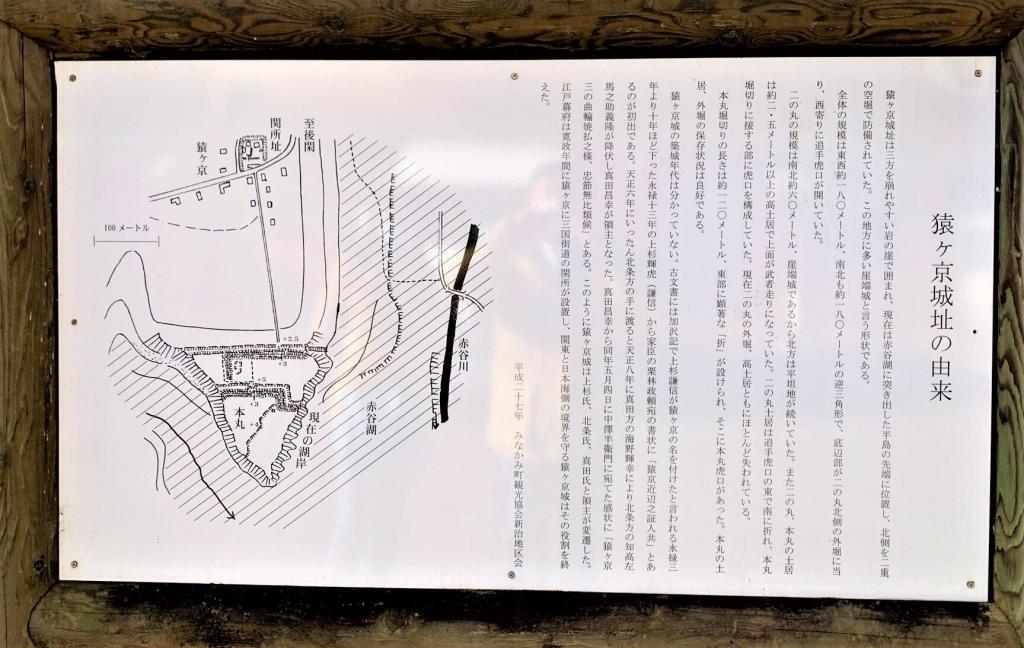 猿ヶ京城址の由来
猿ヶ京城址は三方を崩れやすい岩の崖で囲まれ、現在は赤谷湖に突き出した半島の先端に位置し、北側を二重
の空堀で防備されていた。この地方に多い崖端城と言う形状である。
全体の規模は東西約一八〇メートル、南北も約一八〇メートルの逆三角形で、底辺部が二の丸北側の外堀に当
り、西寄りに追手虎口が開いていた。
二の丸の規模は南北約六〇メートル、崖端城であるから北方は平坦地が続いていた。また二の丸、本丸の土居
は約二・五メートル以上の高土居で上面が武者走りになっていた。二の丸土居は追手虎口の東で南に折れ、本丸
堀切りに接する部に虎口を構成していた。現在二の丸の外堀、高土居ともにほとんど失われている。
本丸堀切りの長さは約一二〇メートル、東部に顕著な「折」が設けられ、そこに本丸虎口があった。本丸の土
居、外堀の保存状況は良好である。
猿ヶ京城の築城年代は分かっていない。古文書には加沢記で上杉謙信が猿ヶ京の名を付けたと言われる永禄三
年より十年ほど下った永禄十三年の上杉輝虎（謙信）から家臣の栗林政頼宛の書状に「猿京近辺之証人共」とあ
るのが初出である。天正六年にいったん北条方の手に渡ると天正八年に真田方の海野輝幸により北条方の知高左
馬之助義隆が降伏し真田昌幸が領主となった。真田昌幸から同年五月四日に中澤半衛門に宛てた感状に「猿ヶ京
三の曲輪焼払之條、忠節無比類候」とある。このように猿ヶ京城は上杉氏、北条氏、真田氏と領主が変遷した。
江戸幕府は寛政年間に猿ヶ京に三国街道の関所が設置し、関東と日本海側の境界を守る猿ヶ京城はその役割を終
えた。
平成二十七年　みなかみ町観光協会新治地区会
至後閑
関所址
猿ヶ京
100 メートル
赤谷川
赤谷湖
現在の湖岸
本丸
+2.5
+3
+5
+3
+4